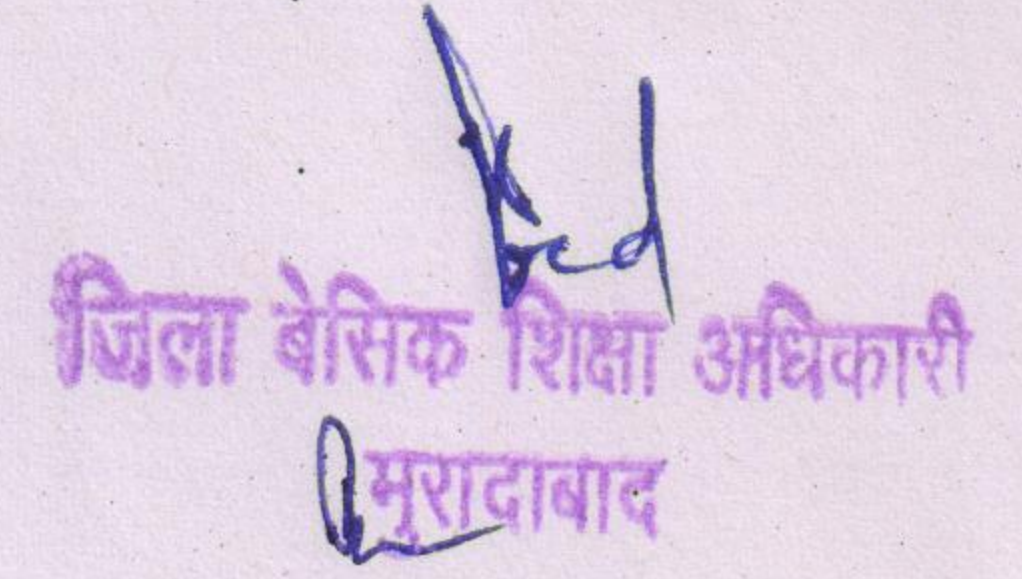 जिला बेसिक शिक्षा अधिकारी
मुरादाबाद